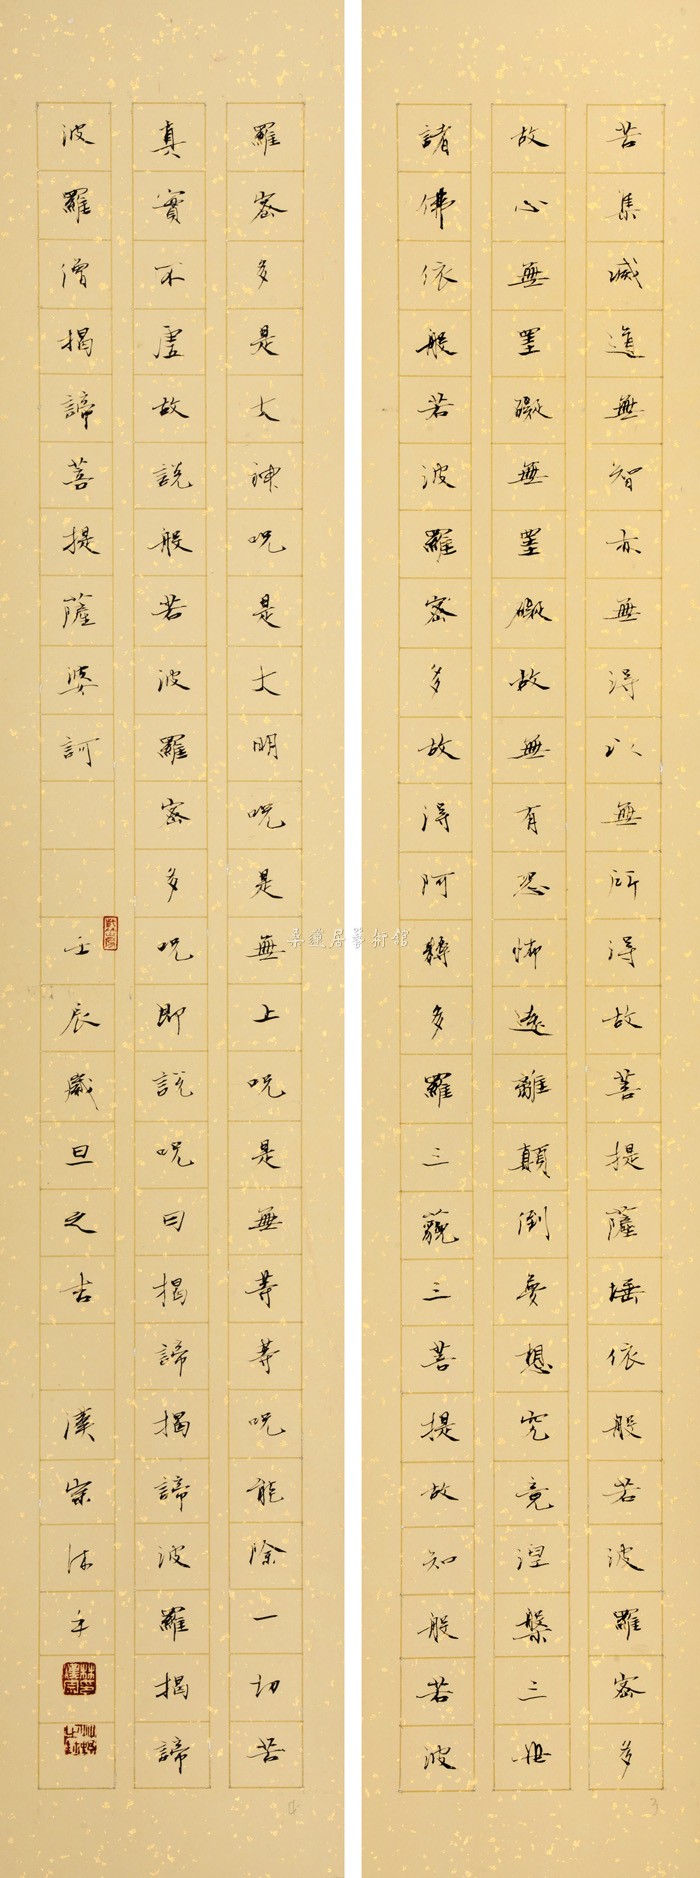 苦集滅道無智亦無得以無所得故菩提薩埵依般若波羅密多
故心無罣礙無罣礙故無有恐怖遠離顛倒夢想究竟涅槃三世
諸佛依般若波羅密多故得阿耨多羅三藐三菩提故知般若波
羅密多是大神咒是大明咒是無上咒是無等等咒能除一切苦
真實不虛故說般若波羅密多咒即説咒曰揭諦揭諦波羅揭諦
波羅僧揭諦菩提薩婆訶 壬辰歲旦之吉 漢宗沐手
桑蓮居藝術館
3